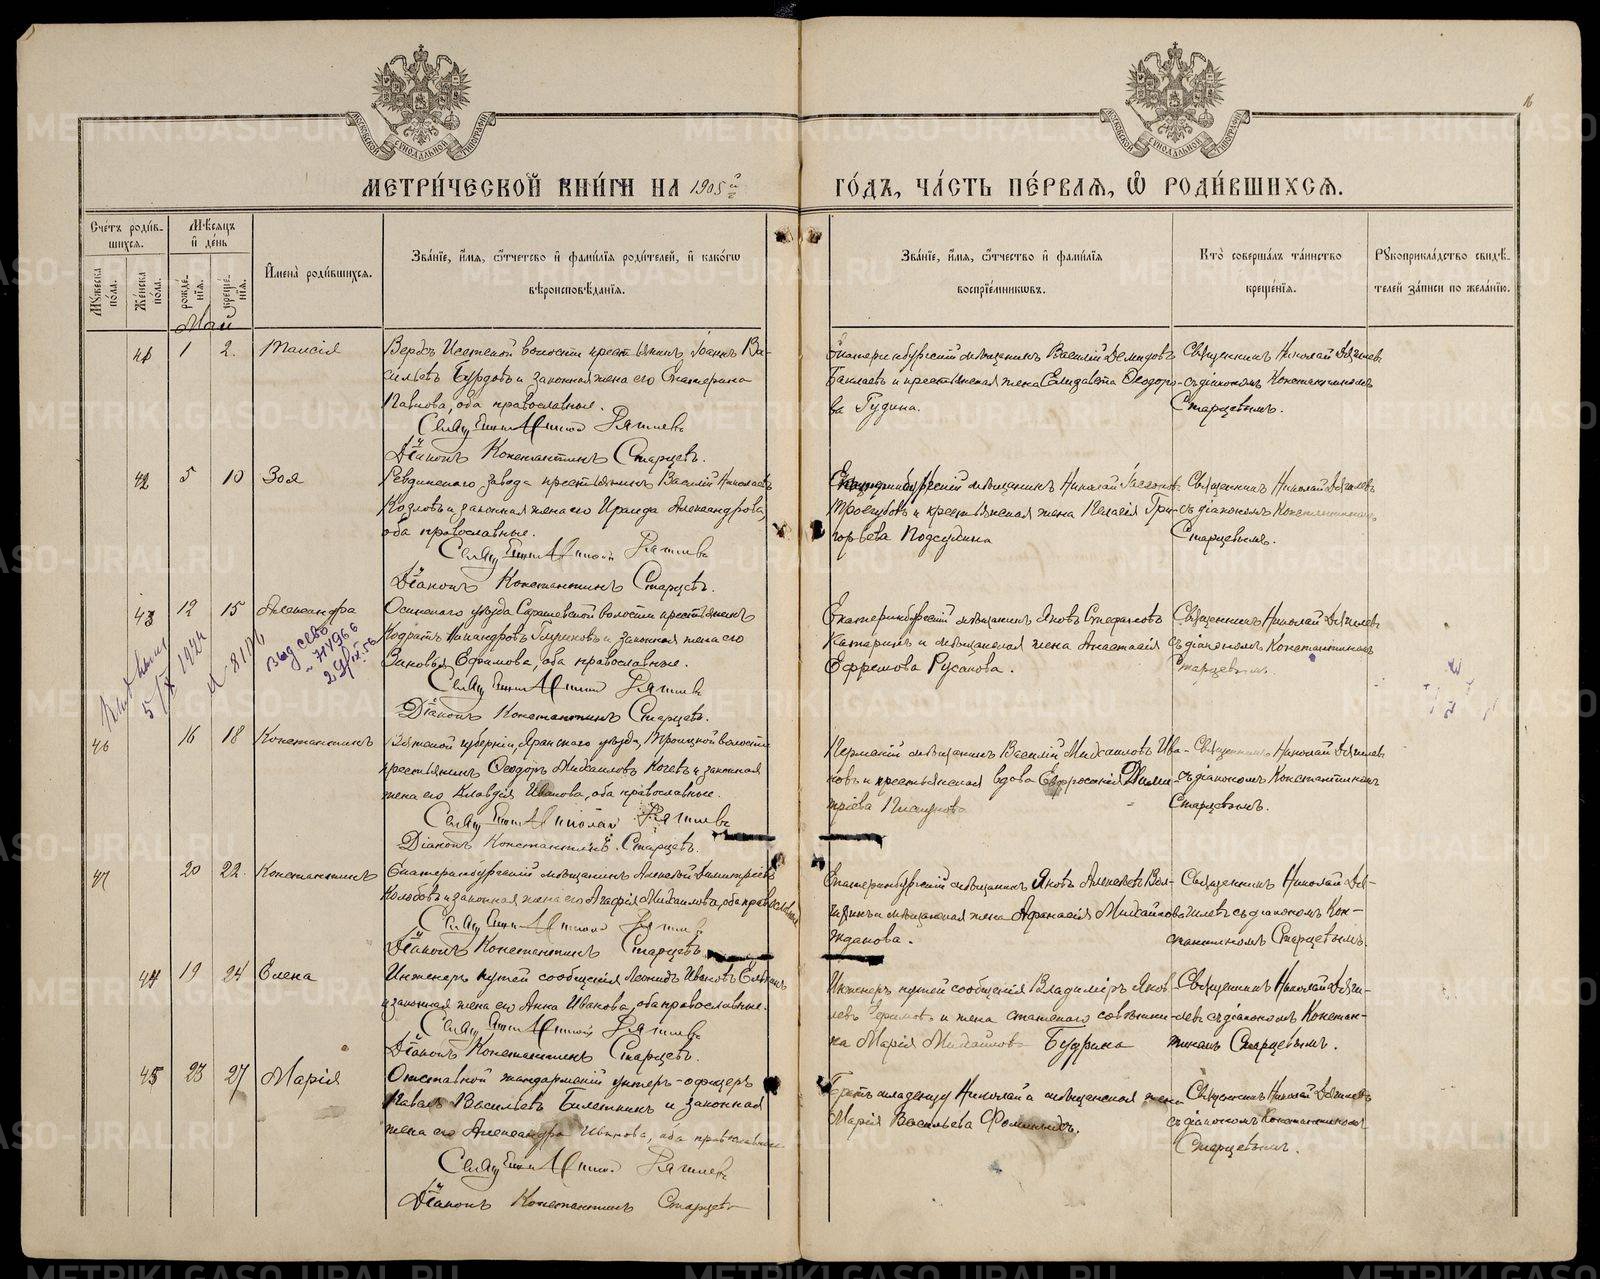 МЕТРИ́ЧЕСКОЙ КНИ́ГИ НА 1905й
ГО́ДЪ, ЧА́СТЬ ПЕ́РВАѦ, Ѡ҆ РОДИ́ВШИХСѦ.
16
Сче́тъ роди́в-
шихсѧ.
Мѣ́сѧцъ
и҆ де́нь
Мꙋ́жеска по́ла.
Же́нска по́ла.
рожде́-нїѧ.
креще́-нїѧ.
И҆мена̀ роди́вшихсѧ.
Зва́нїе, и҆́мѧ, ѻ҆́тчество и҆ фами́лїѧ роди́телей, и҆ како́гѡ
вѣроисповѣ́данїѧ.
Зва́нїе, и҆́мѧ, ѻ҆́тчество и҆ фами́лїѧ
воспрїе́мникѡвъ.
Кто̀ соверша́лъ та́инство
креще́нїѧ.
Рꙋкоприкла́дство свидѣ́-
телей за́писи по жела́нїю.
Май
41 1 2. Таисія
Верхъ Исетской волости крестьянинъ Іоаннъ Ва-
сильевъ Бурдовъ и законная жена его Екатерина
Павлова, оба православные.
Священникъ Николай Дягилевъ
Діаконъ Константинъ Старцевъ.
Екатеринбургскій мѣщанинъ Василій Демидовъ
и крестьянская жена Елизавета Ѳеодоро-
ва Гудина.
Священникъ Николай Дягилевъ
съ діакономъ Константиномъ
Старцевымъ.
42 5 10 Зоя
Ревдинскаго завода крестьянинъ Василій Николаевъ
Козловъ и законная жена его Ираида Александрова,
оба православные.
Священникъ Николай Дягилевъ
Діаконъ Константинъ Старцевъ.
Екатеринбургскій мѣщанинъ Николай
и крестьянская жена Пелагія Гри-
горьева Подсухина
Священникъ Николай Дягилевъ
съ діакономъ Константиномъ
Старцевымъ.
43 12 15 Александра
Осинского уѣзда Сарашевской волости крестьянинъ
Кодратъ Никандровъ и законная жена его
Зиновья Ефимова, оба православные.
Священникъ Николай Дягилевъ
Діаконъ Константинъ Старцевъ.
Екатеринбургскій мѣщанинъ Яковъ Стефановъ
и мѣщанская жена Анастасія
Ефремова Русанова.
Священникъ Николай Дягилевъ
съ діакономъ Константиномъ
Старцевымъ.
5/X 1944
№ 8102
Выд свево
71/1966
29/IX.56
46 16 18 Константинъ
Вятской губерніи, Яранского уѣзда, Троицкой волости
крестьянинъ Ѳеодоръ Михаиловъ Кочевъ и законная
жена его Клавдія Иванова, оба православные.
Священникъ Николай Дягилевъ
Діаконъ Константинъ Старцевъ.
Пермскій мѣщанинъ Василій Михаиловъ Ива-
новъ и крестьянская вдова Евфросинія Дими-
тріева
Священникъ Николай Дягилевъ
съ діакономъ Константиномъ
Старцевымъ.
47 20 22. Константинъ
Екатеринбургскій мѣщанинъ Алексѣй Димитріевъ
Колобовъ и законная жена его Агафія Михаилова, оба православные
Священникъ Николай Дягилевъ
Діаконъ Константинъ Старцевъ.
Екатеринбургскій мѣщанинъ Яковъ Алексѣевъ
и мѣщанская жена Афанасія Михайлова
Жданова.
Священникъ Николай Дя-
гилевъ съ діакономъ Кон-
стантиномъ Старцевымъ.
44 19 24 Елена
Инженеръ путей сообщенія Леонидъ Ивановъ
и законная жена его Анна Иванова, оба православные.
Священникъ Николай Дягилевъ
Діаконъ Константинъ Старцевъ.
Инженеръ путей сообщенія Владиміръ Яков-
левъ и жена статскаго совѣтни-
ка Марія Михайлова Будрина
Священникъ Николай Дяги-
левъ съ діакономъ Констан-
тиномъ Старцевымъ.
45 23 27 Марія
Отставной жандармскій унтеръ-офицеръ
Павелъ Васильевъ Билеткинъ и законная
жена его Александра Иванова, оба православные
Священникъ Николай Дягилевъ
Діаконъ Константинъ Старцевъ
Братъ младенца Николай и мѣщанская жена
Марія Васильева Фоминыхъ.
Священникъ Николай Дягилевъ
съ діакономъ Константиномъ
Старцевымъ.
METRIKI.GASO-URAL.RU